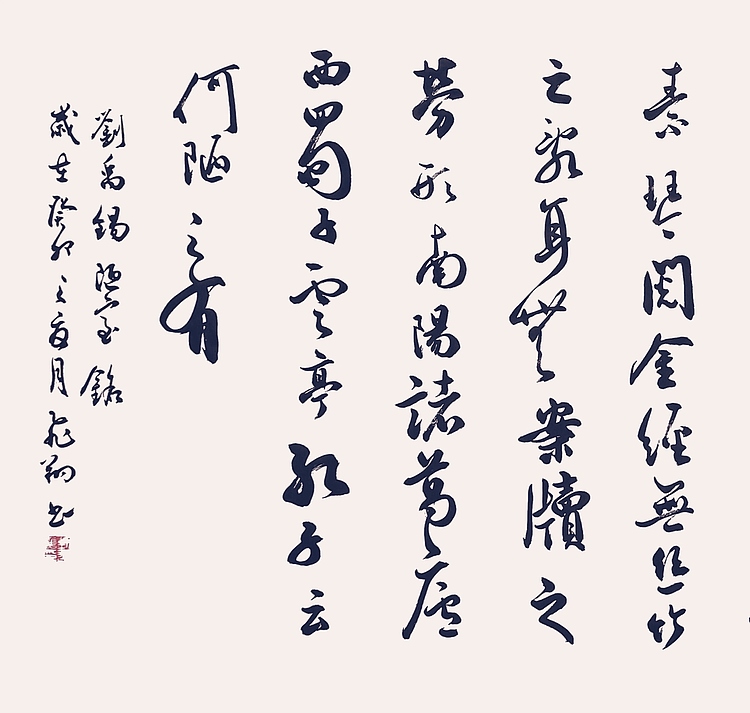 素琴閱金經無絲竹
之亂耳無案牘之
勞形南陽諸葛廬
西蜀子雲亭孔子云
何陋之有
劉禹錫陋室銘
歲在癸卯之夏月飛翔書